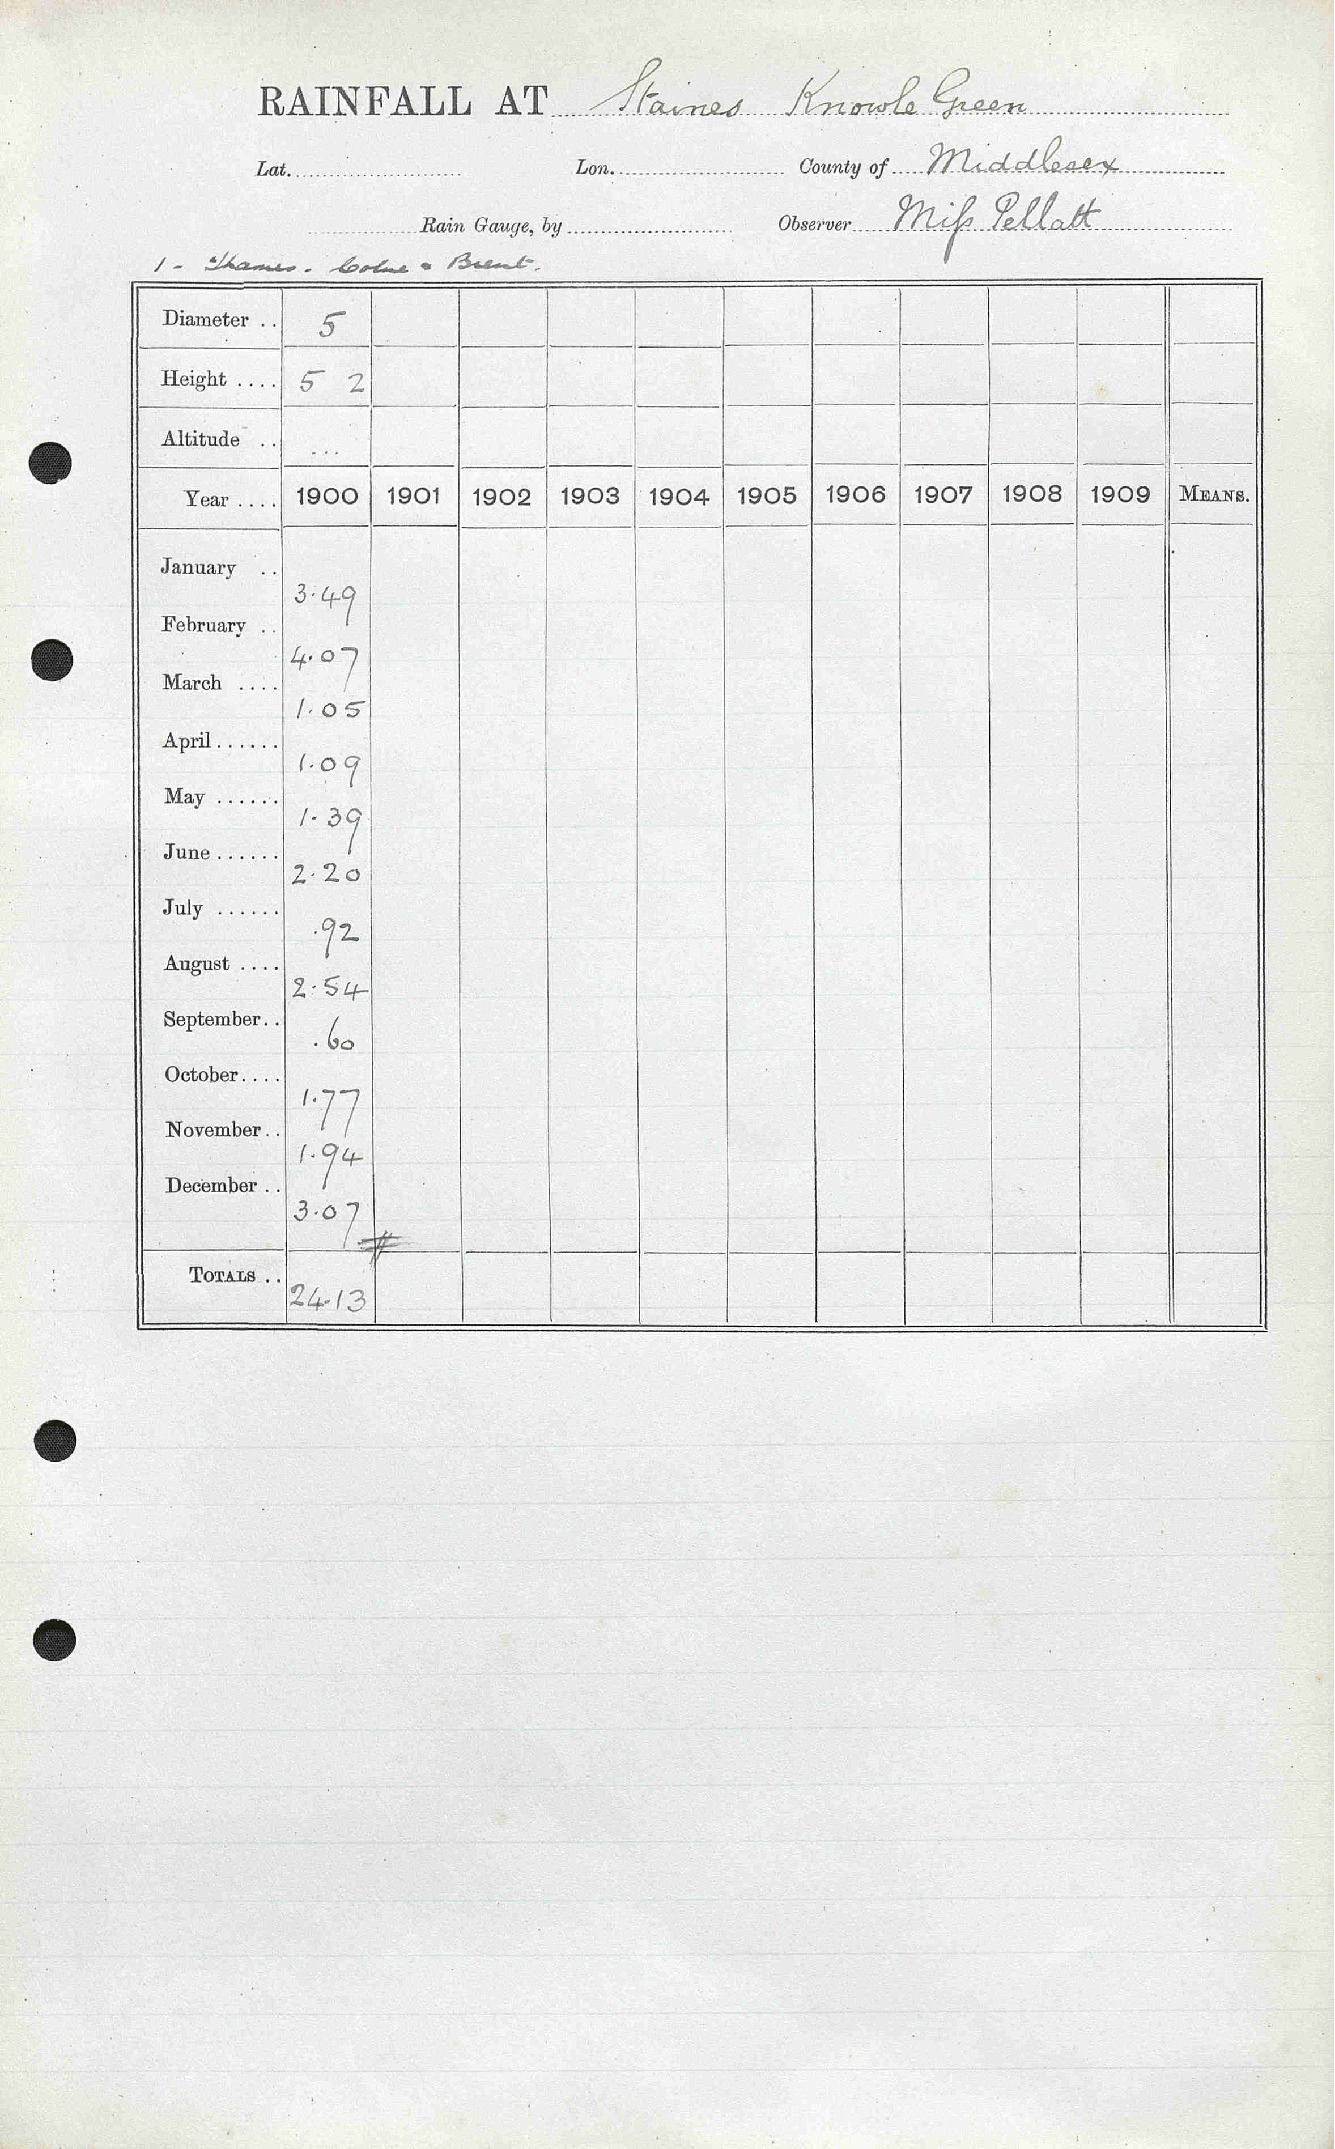 RAINFALL AT Staines Knowle Green
Lat. Lon. County of Middlesex
Rain Gauge, by Observer Miss Pellatt
1 - Thames. Colne & Brent.
Diameter .. 5
Height .... 5 2
Altitude .. ...
Year .... 1900 1901 1902 1903 1904 1905 1906 1907 1908 1909 MEANS.
January .. 3.49
February .. 4.07
March .... 1.05
April ...... 1.09
May ...... 1.39
June ...... 2.20
July ...... .92
August .... 2.54
September .. .60
October .... 1.77
November .. 1.94
December .. 3.07
TOTALS .. 24.13